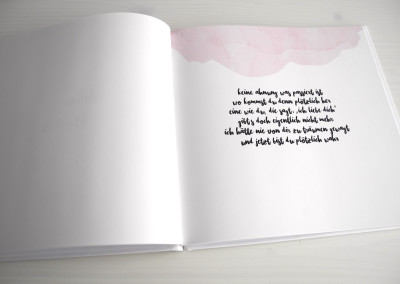 keine ahnung was passiert ist
wo kommst du denn plötzlich her
eine wie du, die sagt: „ich liebe dich“
gibt's doch eigentlich nicht mehr
ich hätte nie von dir zu träumen gewagt
und jetzt bist du plötzlich wahr